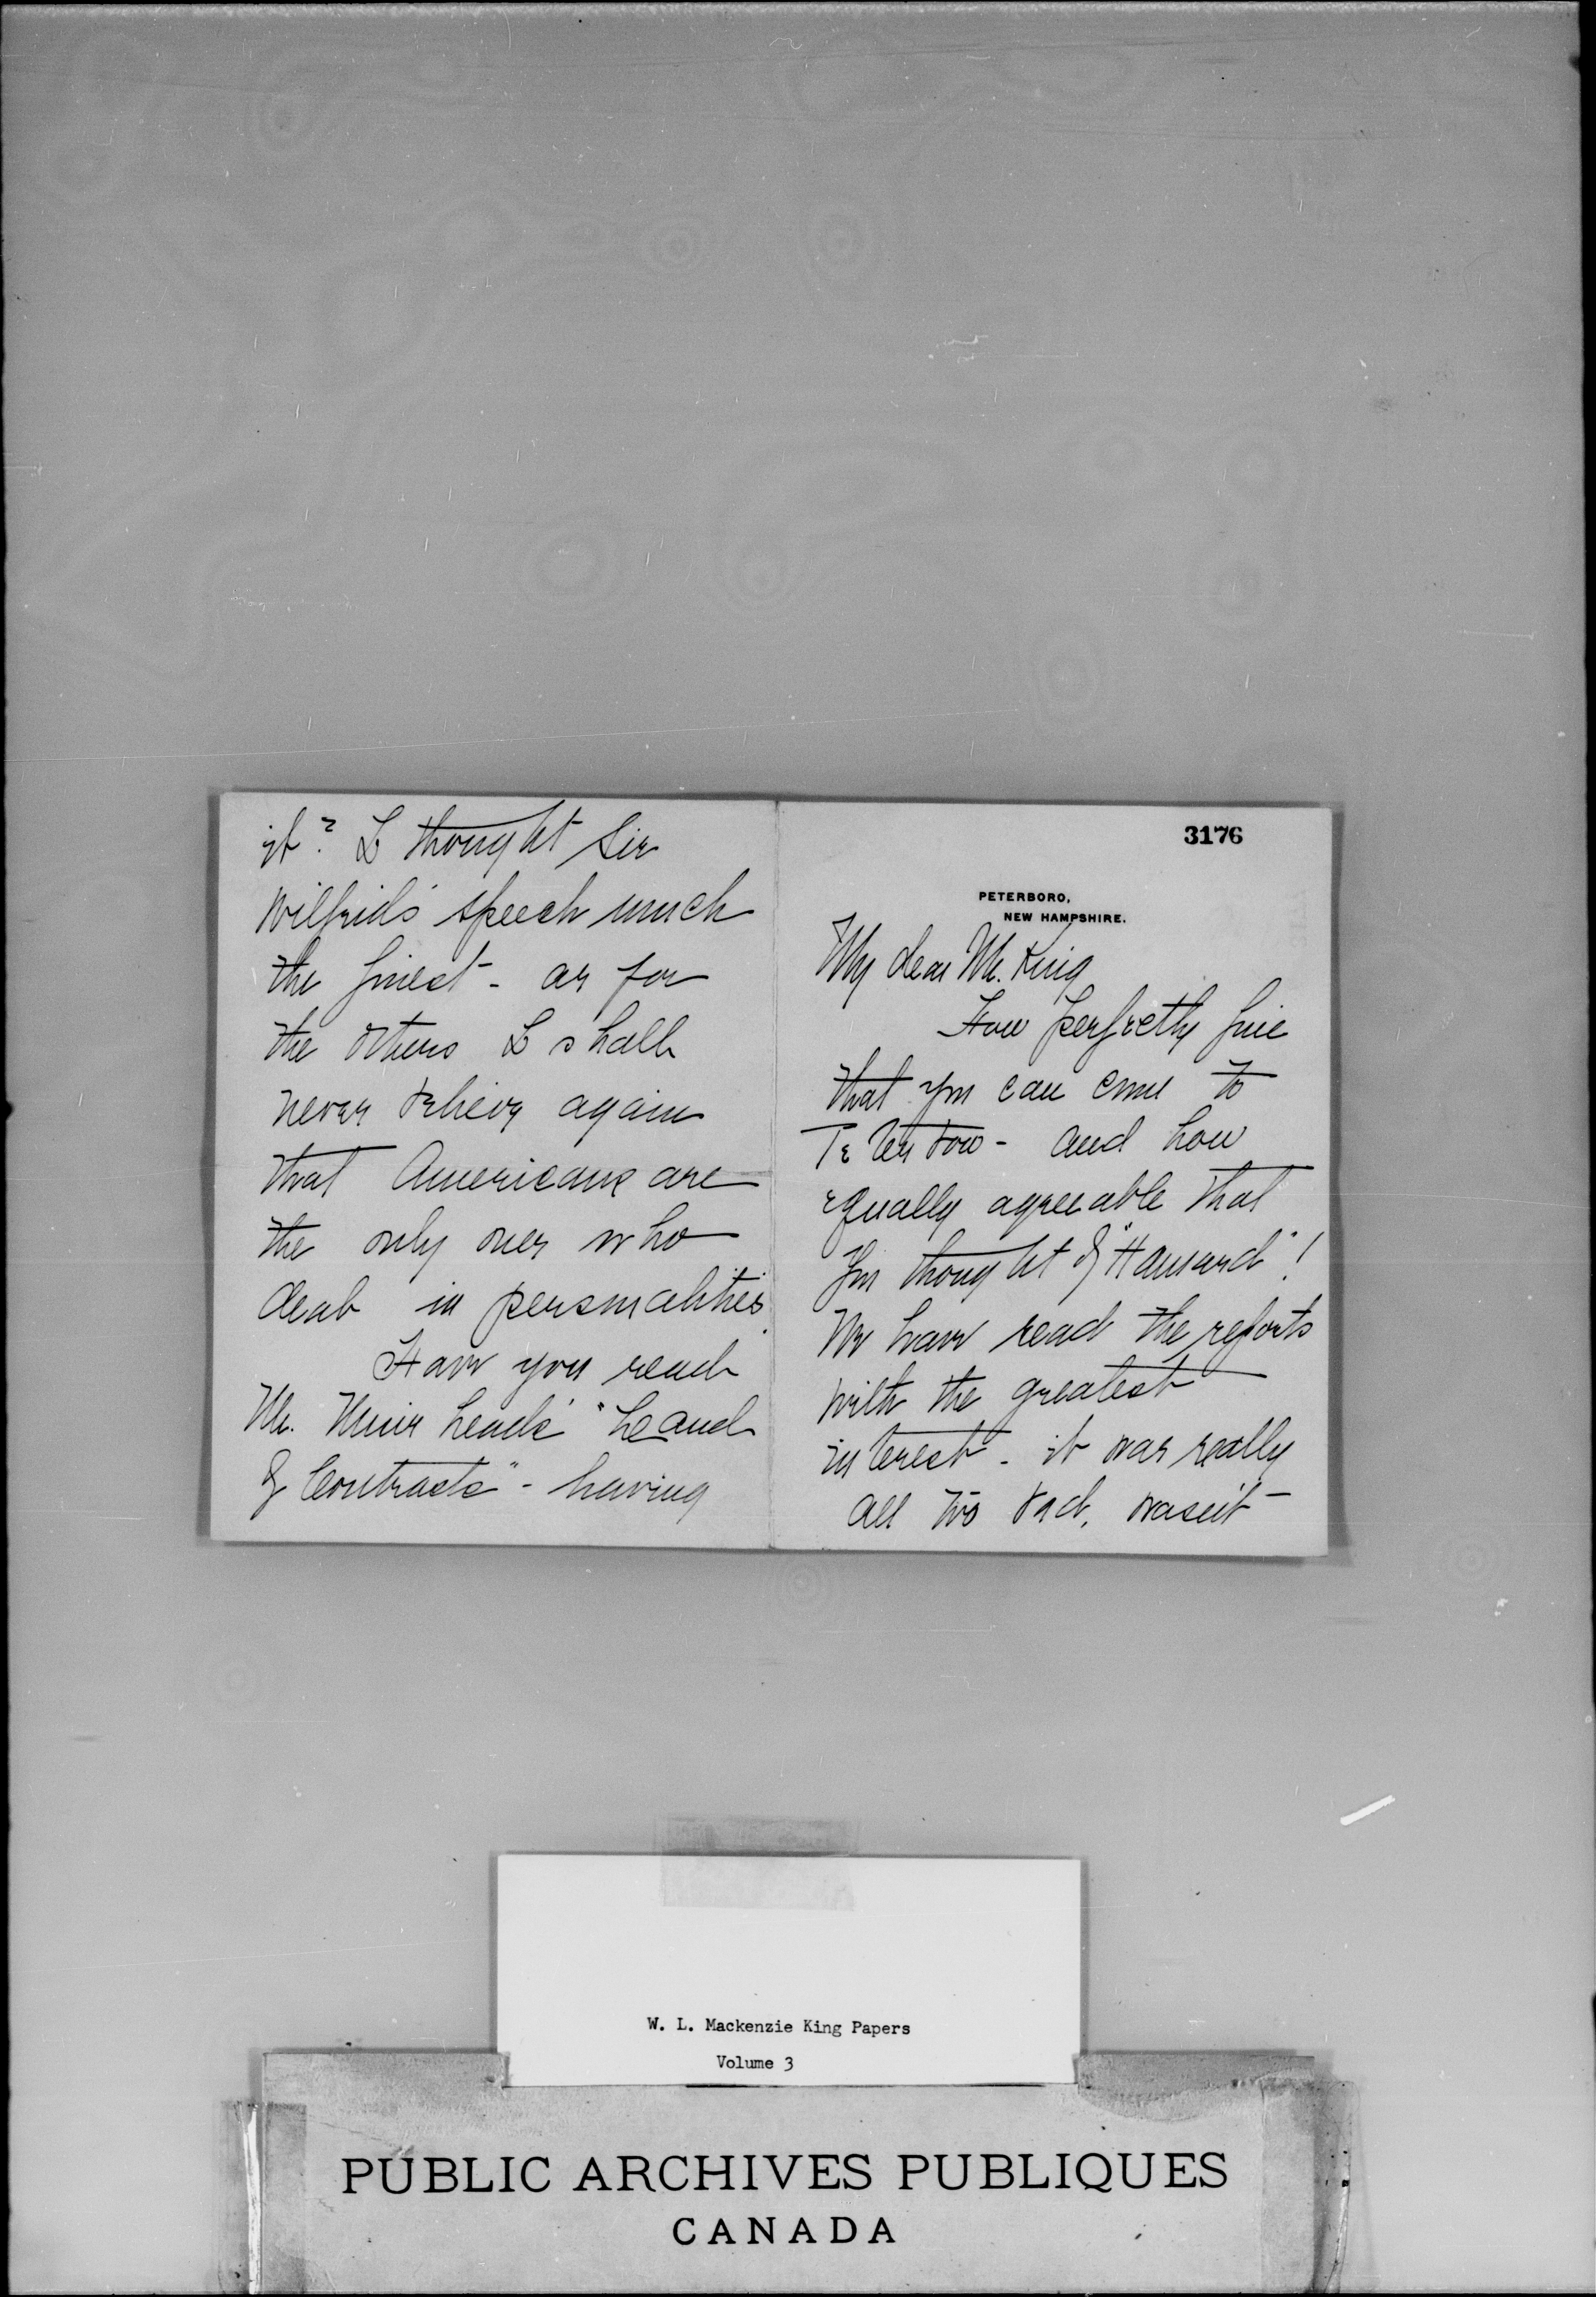 3176
PETERBORO,
NEW HAMPSHIRE.
My dear Mr. King
How perfectly fine
that you can come to
Peterboro - and how
equally agreeable that
you thought of "Hansard"!
We have read the reports
with the greatest
interest - it was really
all too bad, wasn't
it? I thought Sir
Wilfrid's speech much
the finest - as for
the others I shall
never believe again
that Americans are
the only ones who
deal in personalities.
Have you read
Mr. Muirhead's "Land
of Contrasts" - having
W. L. Mackenzie King Papers
Volume 3
PUBLIC ARCHIVES PUBLIQUES
CANADA